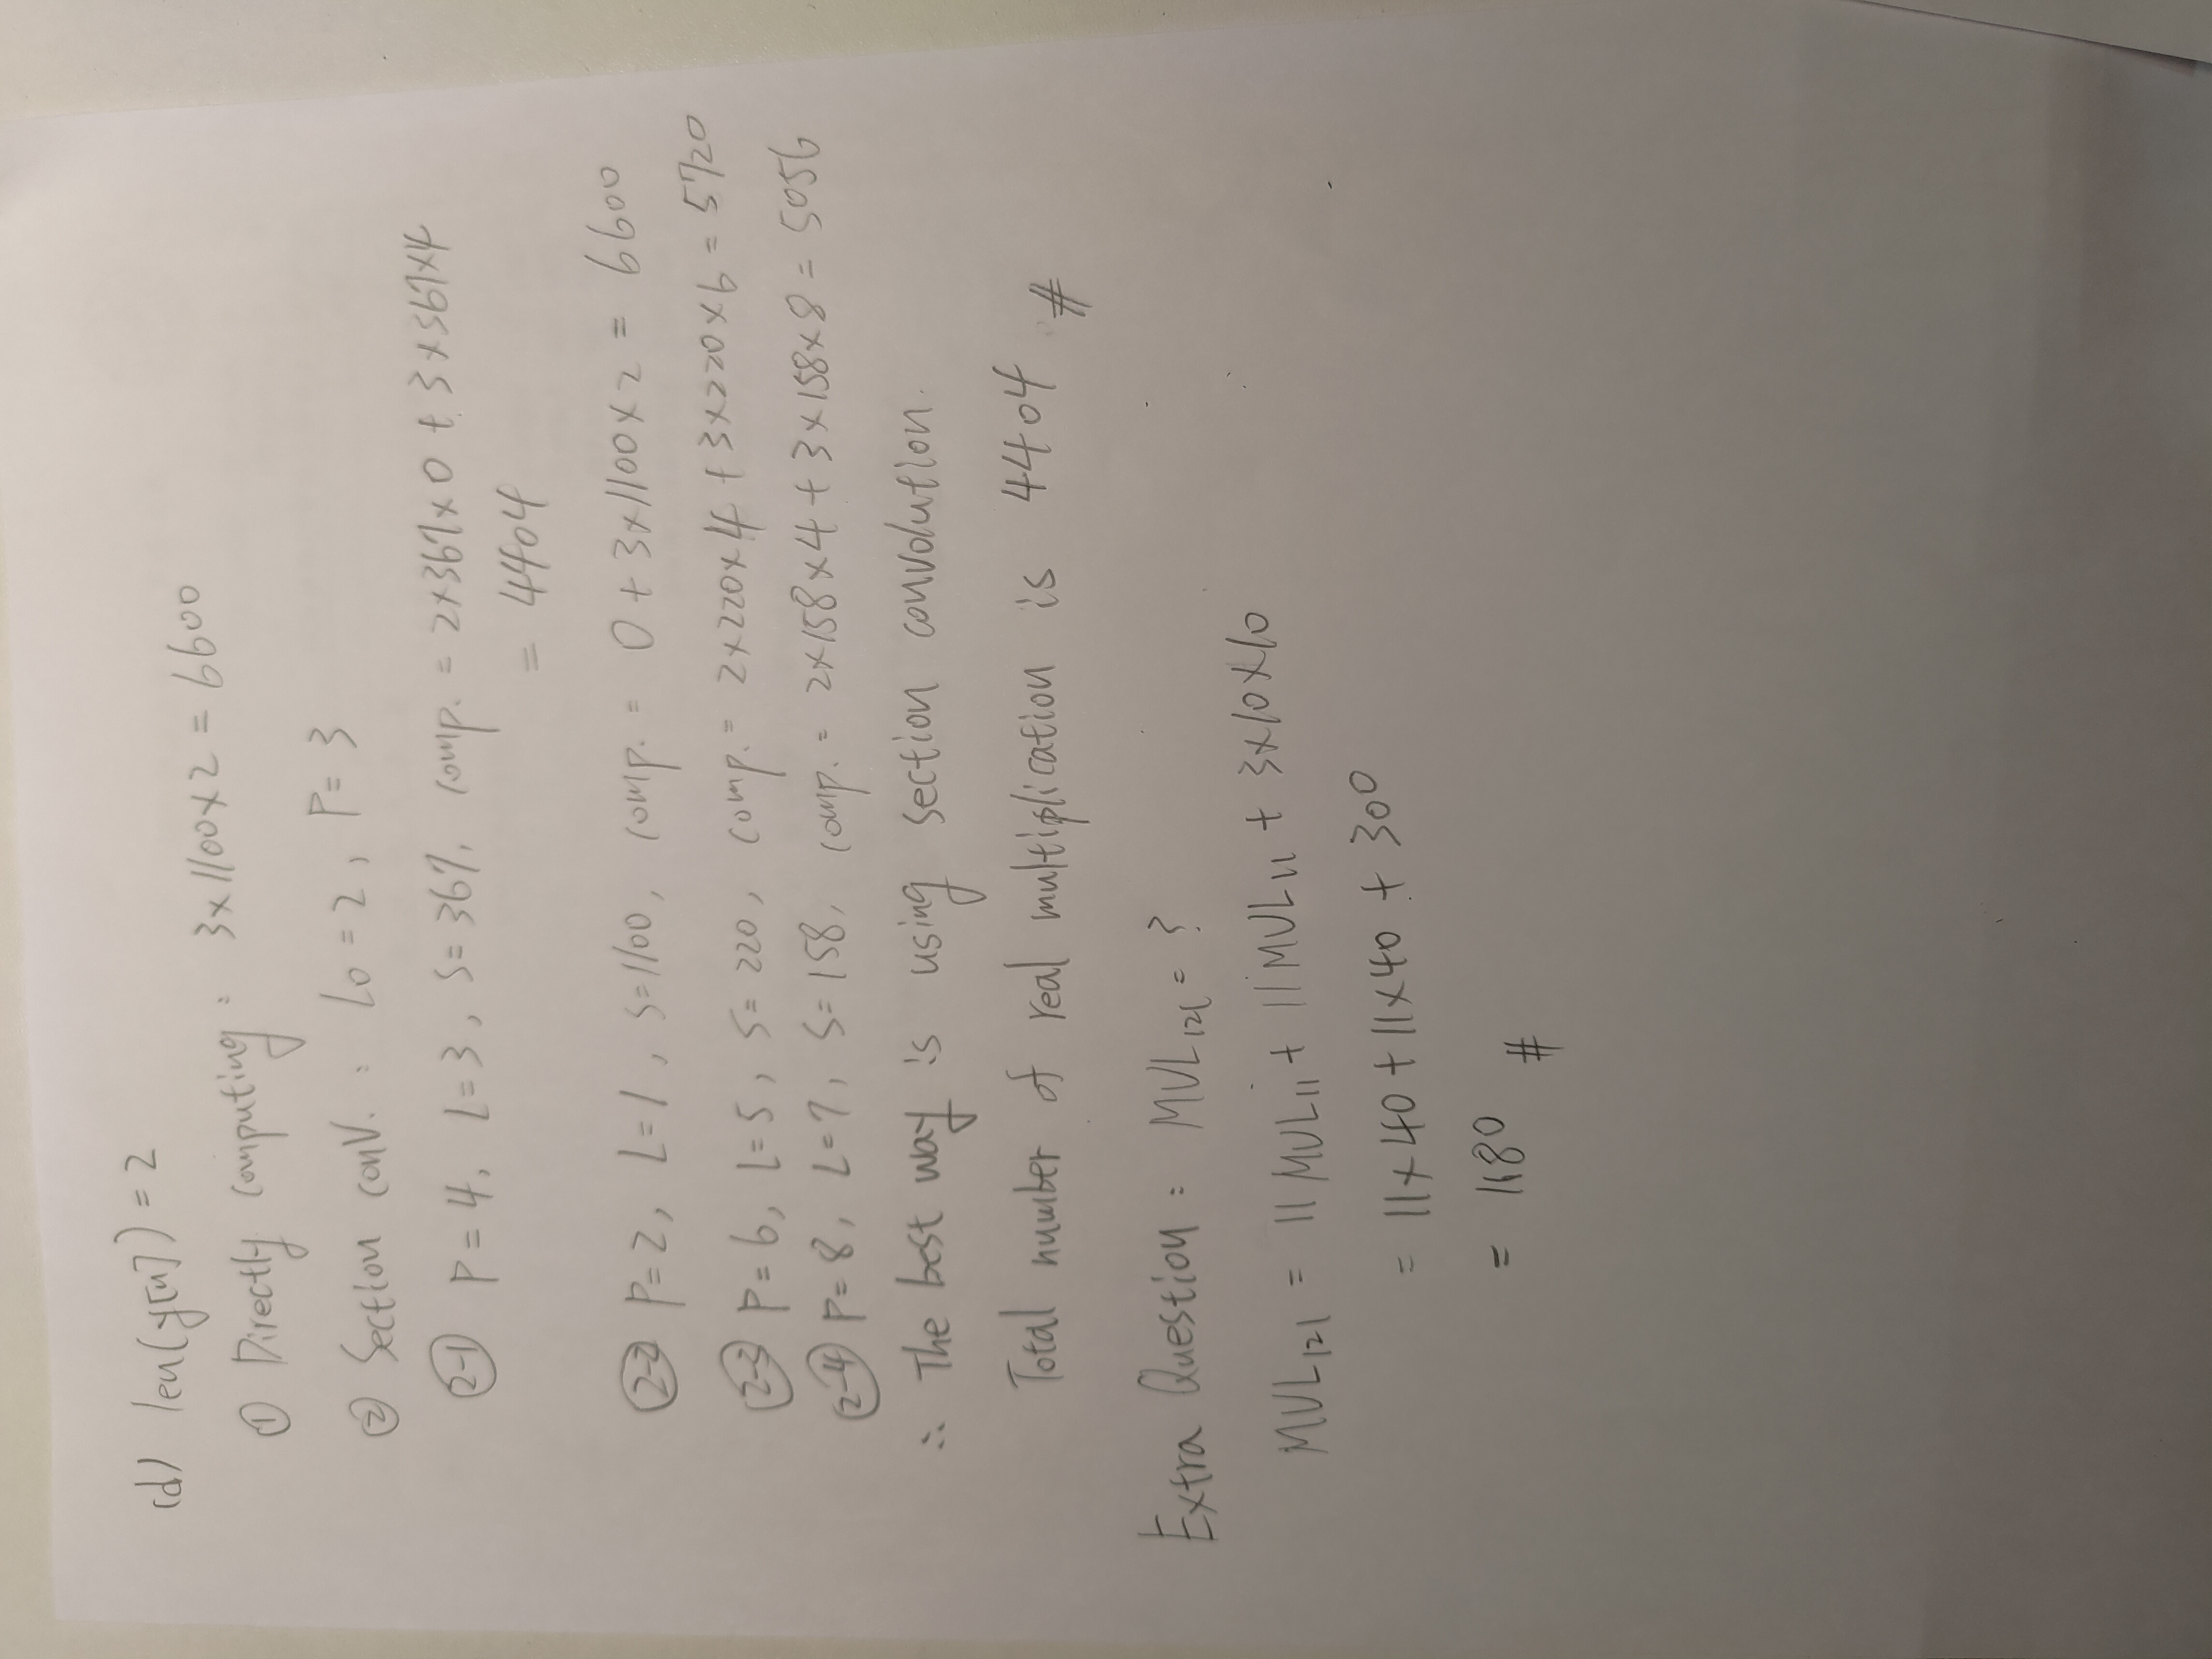 (d) len(y[n]) = 2
① Directly computing : 3×1100×2 = 6600
② Section conV. : L0 = 2, P = 3
(2-1) P = 4, L = 3, S = 367, comp. = 2×367×0 + 3×367×4
= 4404
(2-2) P = 2, L = 1, S = 1100, comp. = 0 + 3×1100×2 = 6600
(2-3) P = 6, L = 5, S = 220, comp. = 2×220×4 + 3×220×6 = 5720
(2-4) P = 8, L = 7, S = 158, comp. = 2×158×4 + 3×158×8 = 5056
∴ The best way is using section convolution.
Total number of real multiplication is 4404 #
Extra Question : MUL121 = ?
MUL121 = 11 MUL11 + 11 MUL11 + 3×10×10
= 11×40 + 11×40 + 300
= 1180 #